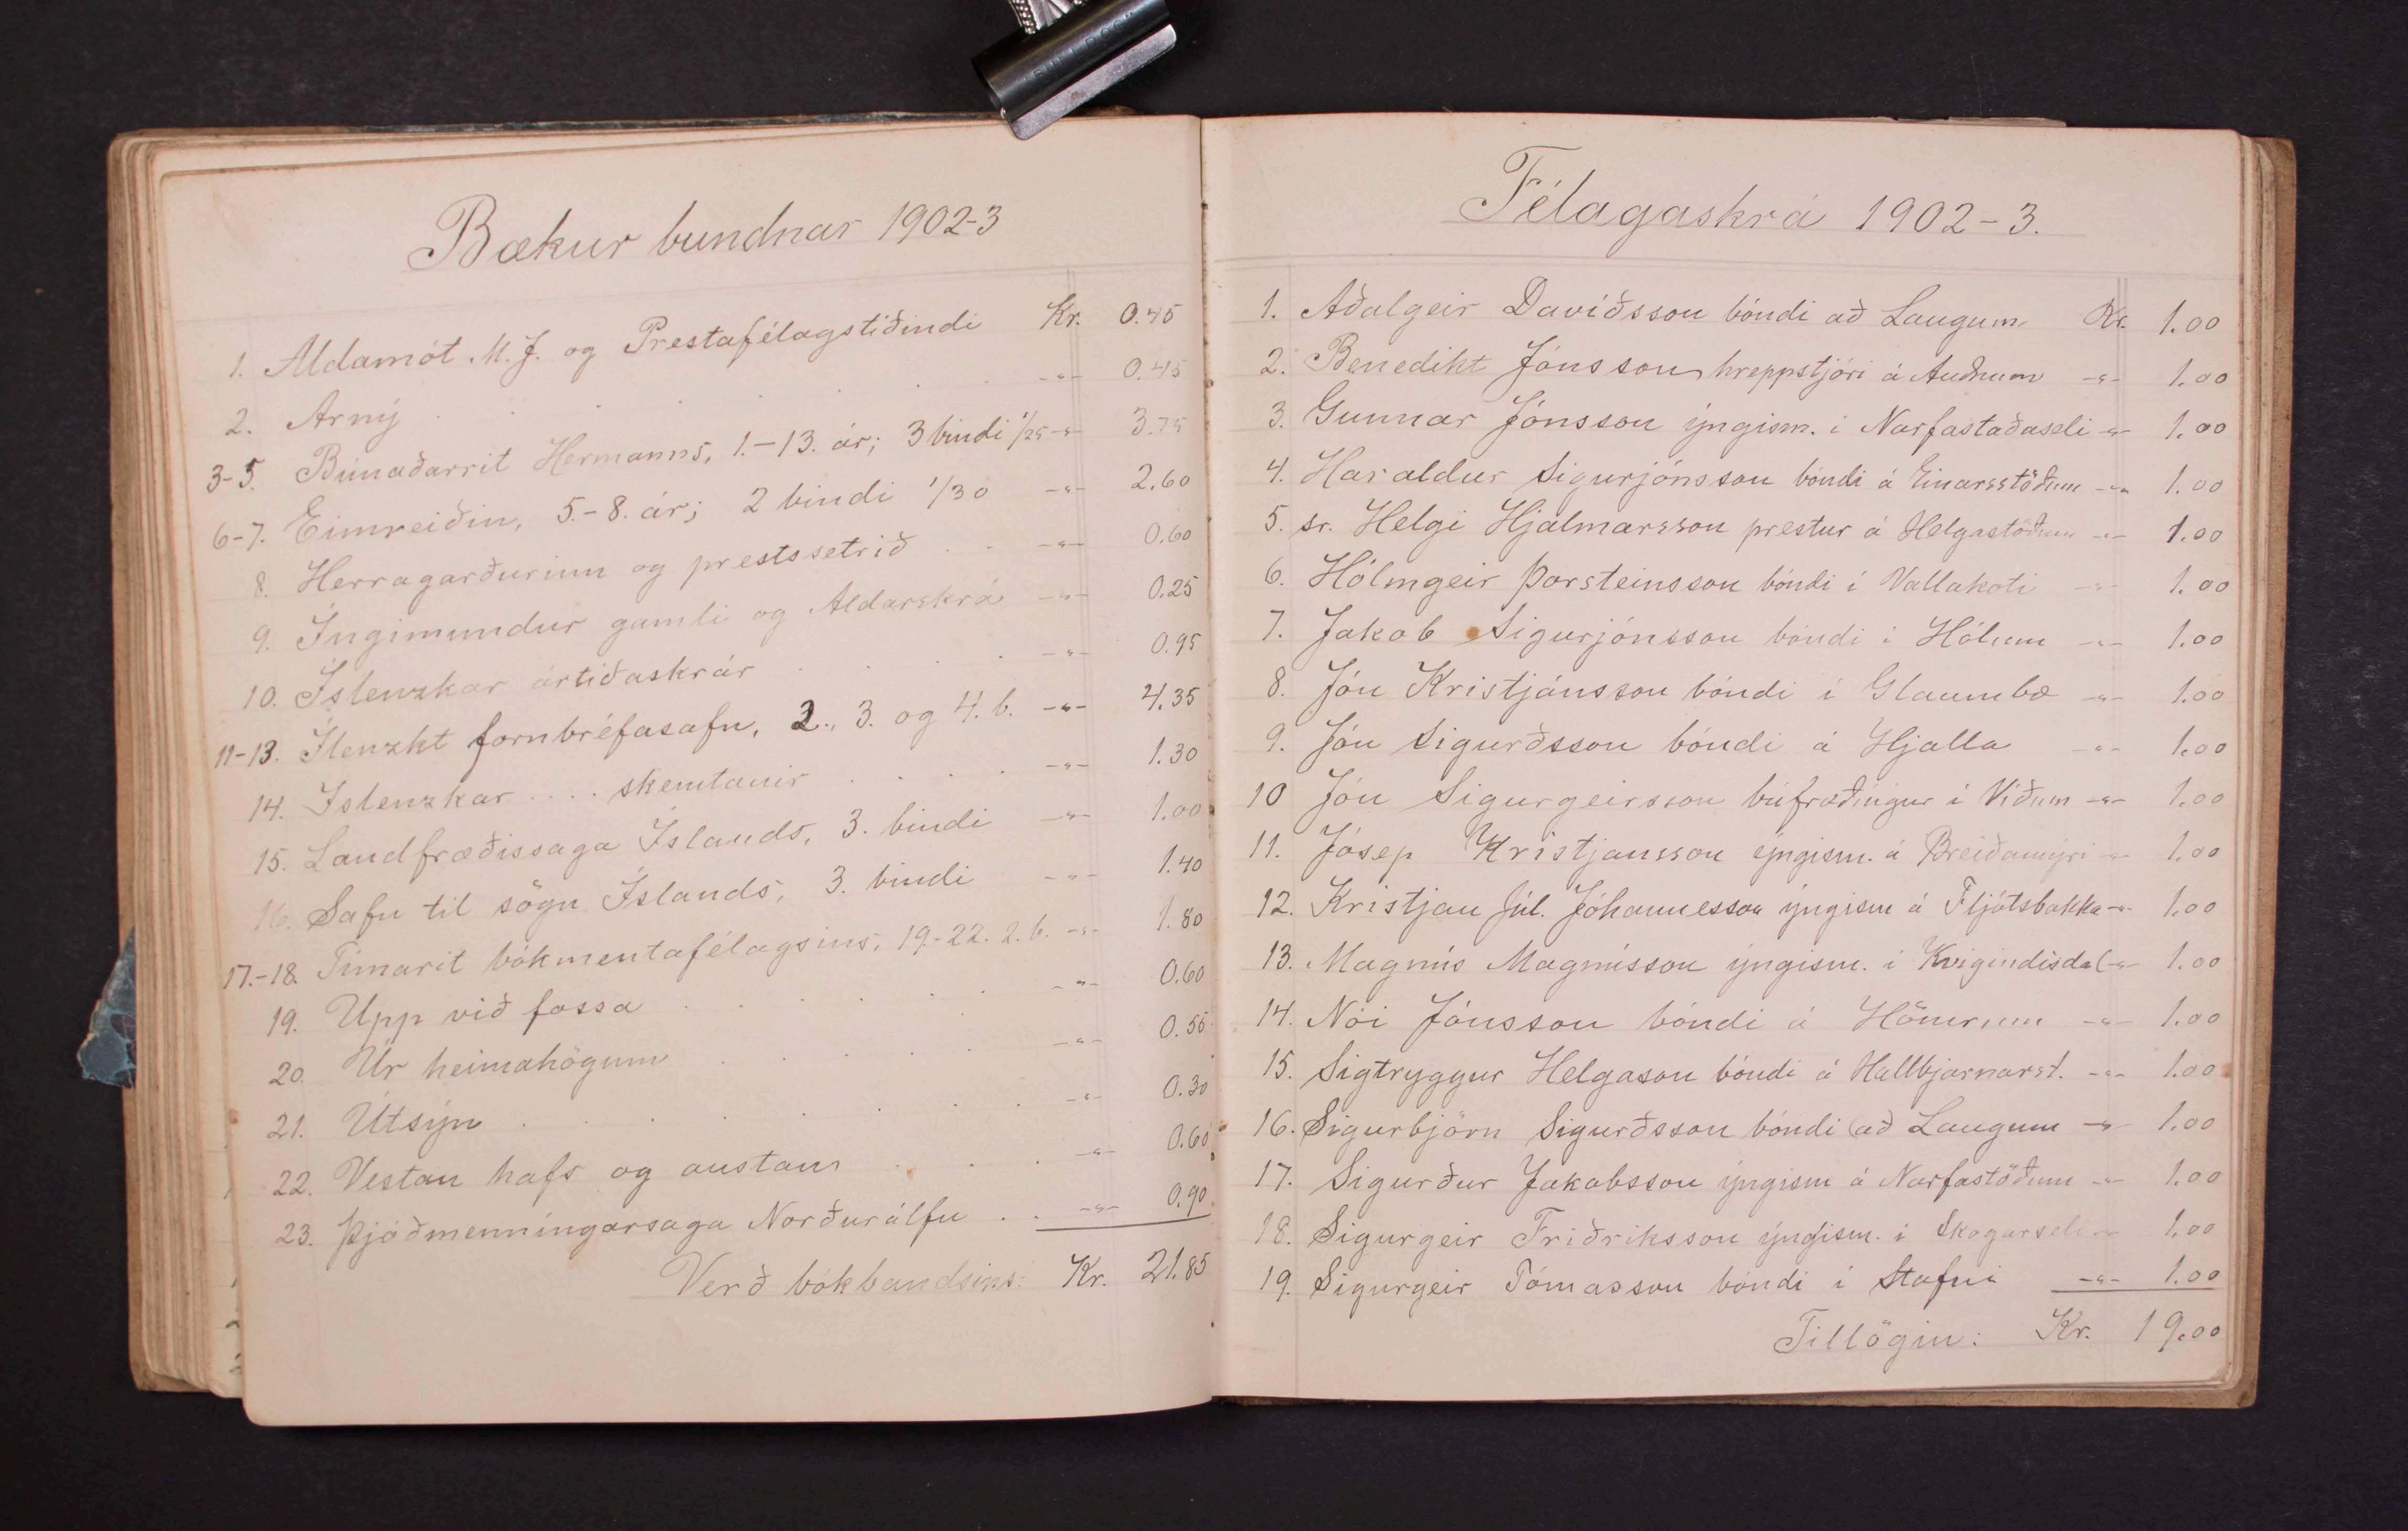 Bækur bundnar 1902-3
1. Aldamót M. J. og Prestafélagstíðindi Kr. 0.45
2. Arný . . . . . . -"- 0.45
3-5. Búnaðarrit Hermanns, 1.-13. ár; 3 bindi 1/25 -"- 3.75
6-7. Eimreiðin, 5.-8. ár; 2 bindi 1/30 -"- 2.60
8. Herragarðurinn og prestssetrið . . -"- 0.60
9. Ingimundur gamli og Aldarskrá -"- 0.25
10. Íslenzkar ártíðaskrár . . . . -"- 0.95
11-13. Ílenzkt fornbréfasafn, 2., 3. og 4. b. -"- 4.35
14. Íslenzkar .... skemtanir . . . . -"- 1.30
15. Landfræðissaga Íslands, 3. bindi -"- 1.00
16. Safn til sögu Íslands, 3. bindi -"- 1.40
17.-18. Tímarit bókmentafélagsins, 19.-22. 2. b. -"- 1.80
19. Upp við fossa . . . . . . -"- 0.60
20. Úr heimahögum . . . . . -"- 0.55
21. Útsýn . . . . . . . -"- 0.30
22. Vestan hafs og austan . . . -"- 0.60
23. Þjóðmenningarsaga Norðurálfu . . -"- 0.90
Verð bókbandsins: Kr. 21.85
Félagaskrá 1902-3.
1. Aðalgeir Davíðsson bóndi að Laugum Kr. 1.00
2. Benedikt Jónsson hreppstjóri á Auðnum -"- 1.00
3. Gunnar Jónsson yngism. í Narfastaðaseli -"- 1.00
4. Haraldur Sigurjónsson bóndi á Einarsstöðum -"- 1.00
5. sr. Helgi Hjálmarsson prestur á Helgastöðum -"- 1.00
6. Hólmgeir Þorsteinsson bóndi í Vallakoti -"- 1.00
7. Jakob Sigurjónsson bóndi í Hólum -"- 1.00
8. Jón Kristjánsson bóndi í Glaumbæ -"- 1.00
9. Jón Sigurðsson bóndi á Hjalla -"- 1.00
10 Jón Sigurgeirsson búfræðingur í Víðum -"- 1.00
11. Jósep Kristjansson yngism. á Breiðumýri -"- 1.00
12. Kristjan Júl. Jóhannesson yngism á Fljótsbakka -"- 1.00
13. Magnús Magnússon yngism. í Kvigindisdal -"- 1.00
14. Nói Jónsson bóndi á Hömrum -"- 1.00
15. Sigtryggur Helgason bóndi á Hallbjarnarst. -"- 1.00
16. Sigurbjörn Sigurðsson bóndi að Laugum -"- 1.00
17. Sigurður Jakobsson yngism á Narfastöðum -"- 1.00
18. Sigurgeir Friðriksson yngism. í Skogarseli -"- 1.00
19. Sigurgeir Tómasson bóndi í Stafni -"- 1.00
Tillögin: Kr. 19.00